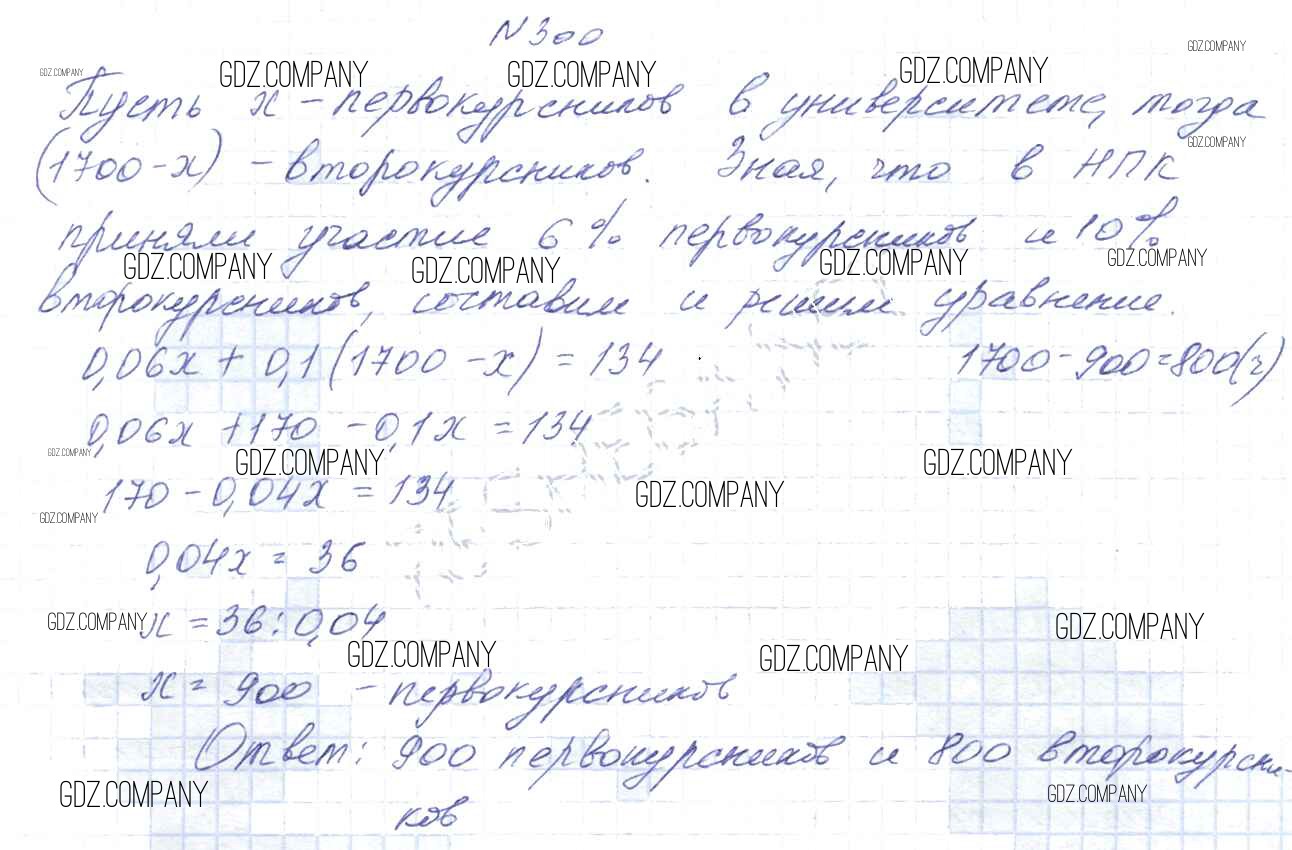 N 300
GDZ.COMPANY GDZ.COMPANY GDZ.COMPANY GDZ.COMPANY GDZ.COMPANY
Пусть x - первокурсников в университете, тогда
(1700 - x) - второкурсников. Зная, что в НПК
GDZ.COMPANY
приняли участие 6% первокурсников и 10%
GDZ.COMPANY GDZ.COMPANY GDZ.COMPANY GDZ.COMPANY
второкурсников, составим и решим уравнение.
0,06x + 0,1(1700 - x) = 134 1700 - 900 = 800(ч)
0,06x + 170 - 0,1x = 134
GDZ.COMPANY GDZ.COMPANY GDZ.COMPANY
170 - 0,04x = 134 GDZ.COMPANY
GDZ.COMPANY
0,04x = 36
GDZ.COMPANY x = 36 : 0,04 GDZ.COMPANY
GDZ.COMPANY GDZ.COMPANY
x = 900 - первокурсников
Ответ: 900 первокурсников и 800 второкурсни-
GDZ.COMPANY GDZ.COMPANY
ков